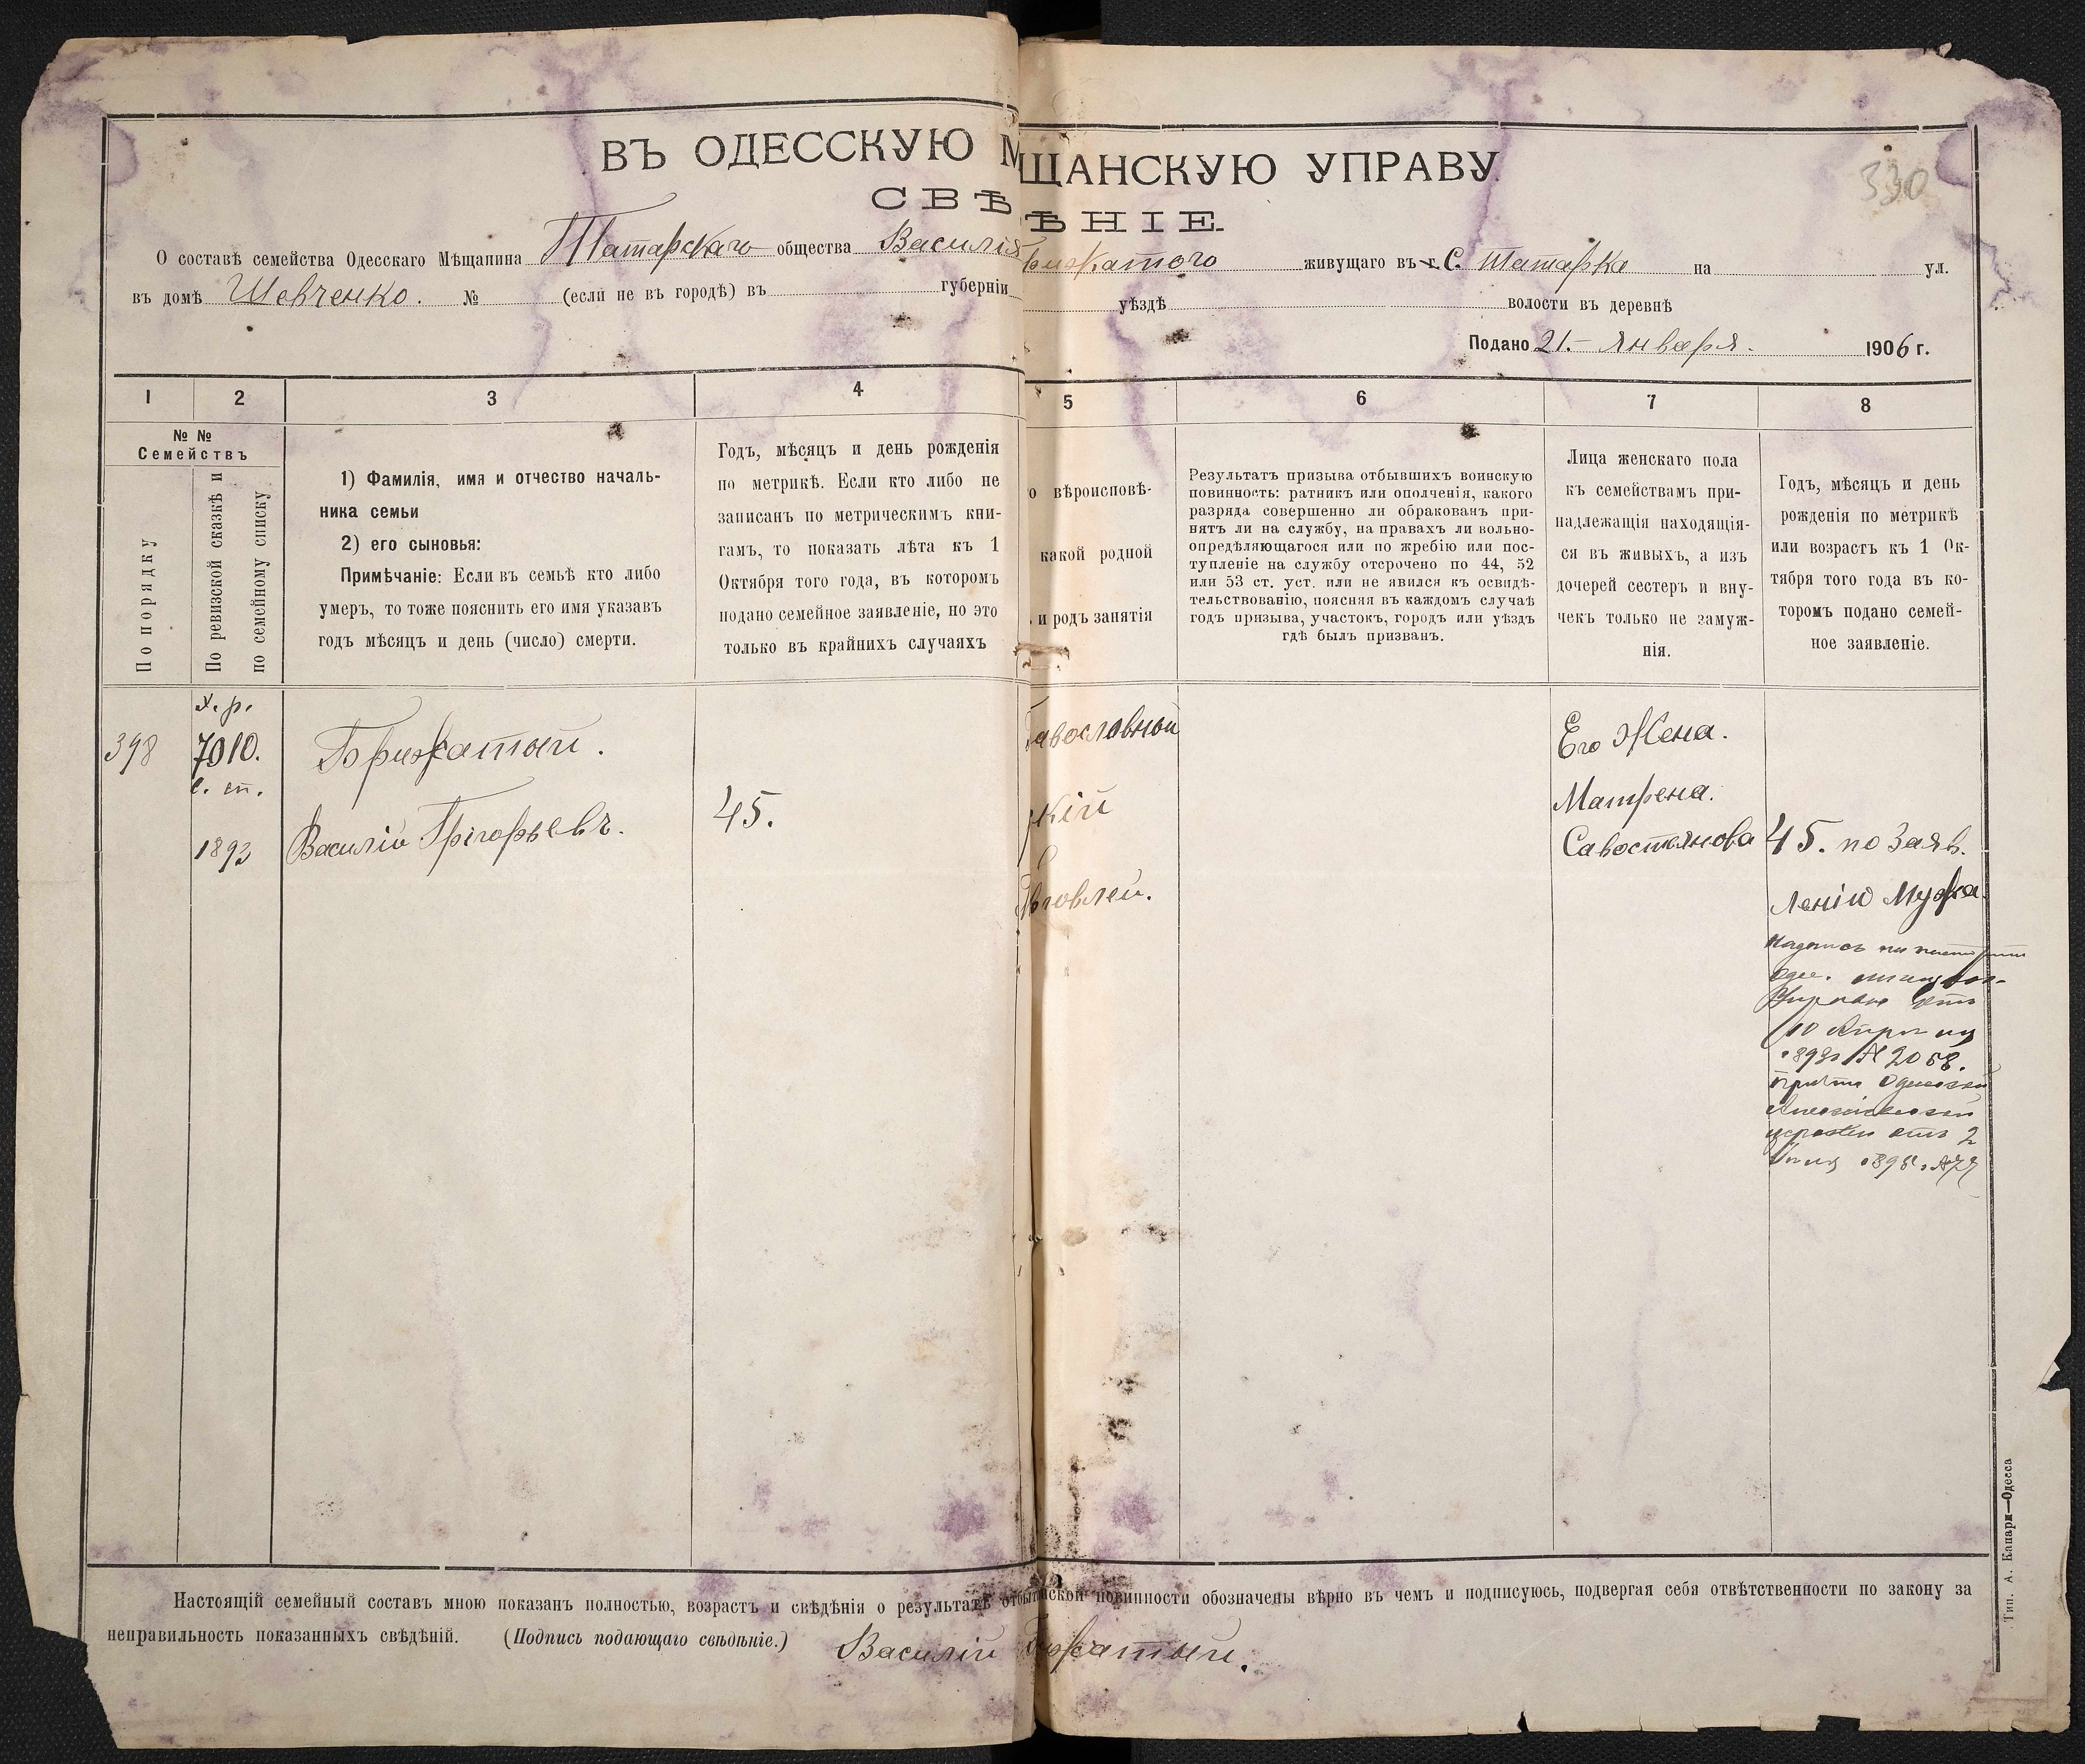 ВЪ ОДЕССКУЮ М ЩАНСКУЮ УПРАВУ
330
СВѢ ѢНІЕ.
О составѣ семейства Одесскаго Мѣщанина Татарскаго общества Василія Брижатого живущаго въ г. С. Татарка на ул.
въ домѣ Шевченко. № (если не въ городѣ) въ губерніи уѣздѣ волости въ деревнѣ
Подано 21.- Января. 1906 г.
1 2 3 4 5 6 7 8
№ №
Семействъ
По порядку
По ревизской сказкѣ и
по семейному списку
1) Фамилія, имя и отчество началь-
ника семьи
2) его сыновья:
Примѣчаніе: Если въ семьѣ кто либо
умеръ, то тоже пояснить его имя указавъ
годъ мѣсяцъ и день (число) смерти.
Годъ, мѣсяцъ и день рожденія
по метрикѣ. Если кто либо не
записанъ по метрическимъ кни-
гамъ, то показать лѣта къ 1
Октября того года, въ которомъ
подано семейное заявленіе, но это
только въ крайнихъ случаяхъ
о вѣроисповѣ-
какой родной
и родъ занятія
Результатъ призыва отбывшихъ воинскую
повинность: ратникъ или ополченія, какого
разряда совершенно ли обракованъ при-
нятъ ли на службу, на правахъ ли вольно-
опредѣляющагося или по жребію или пос-
тупленіе на службу отсрочено по 44, 52
или 53 ст. уст. или не явился къ освидѣ-
тельствованію, поясняя въ каждомъ случаѣ
годъ призыва, участокъ, городъ или уѣздъ
гдѣ былъ призванъ.
Лица женскаго пола
къ семействамъ при-
надлежащія находящія-
ся въ живыхъ, а изъ
дочерей сестеръ и вну-
чекъ только не замуж-
нія.
Годъ, мѣсяцъ и день
рожденія по метрикѣ
или возрастъ къ 1 Ок-
тября того года въ ко-
торомъ подано семей-
ное заявленіе.
398
х. р.
7010.
с. сп.
1893
Брижатый.
Василій Грігорьевъ.
45.
авославной
кій
рговлей.
Его Жена.
Матрена.
Савостянова
45. по Заяв.
Леніи Мужа.
10
1893 № 2058.
2
Настоящій семейный составъ мною показанъ полностью, возрастъ и свѣдѣнія о результатѣ отбы нской повинности обозначены вѣрно въ чемъ и подписуюсь, подвергая себя отвѣтственности по закону за
неправильность показанныхъ свѣдѣній. (Подпись подающаго свѣдѣніе.) Василій Брижатый.
Тип. А. Капари—Одесса